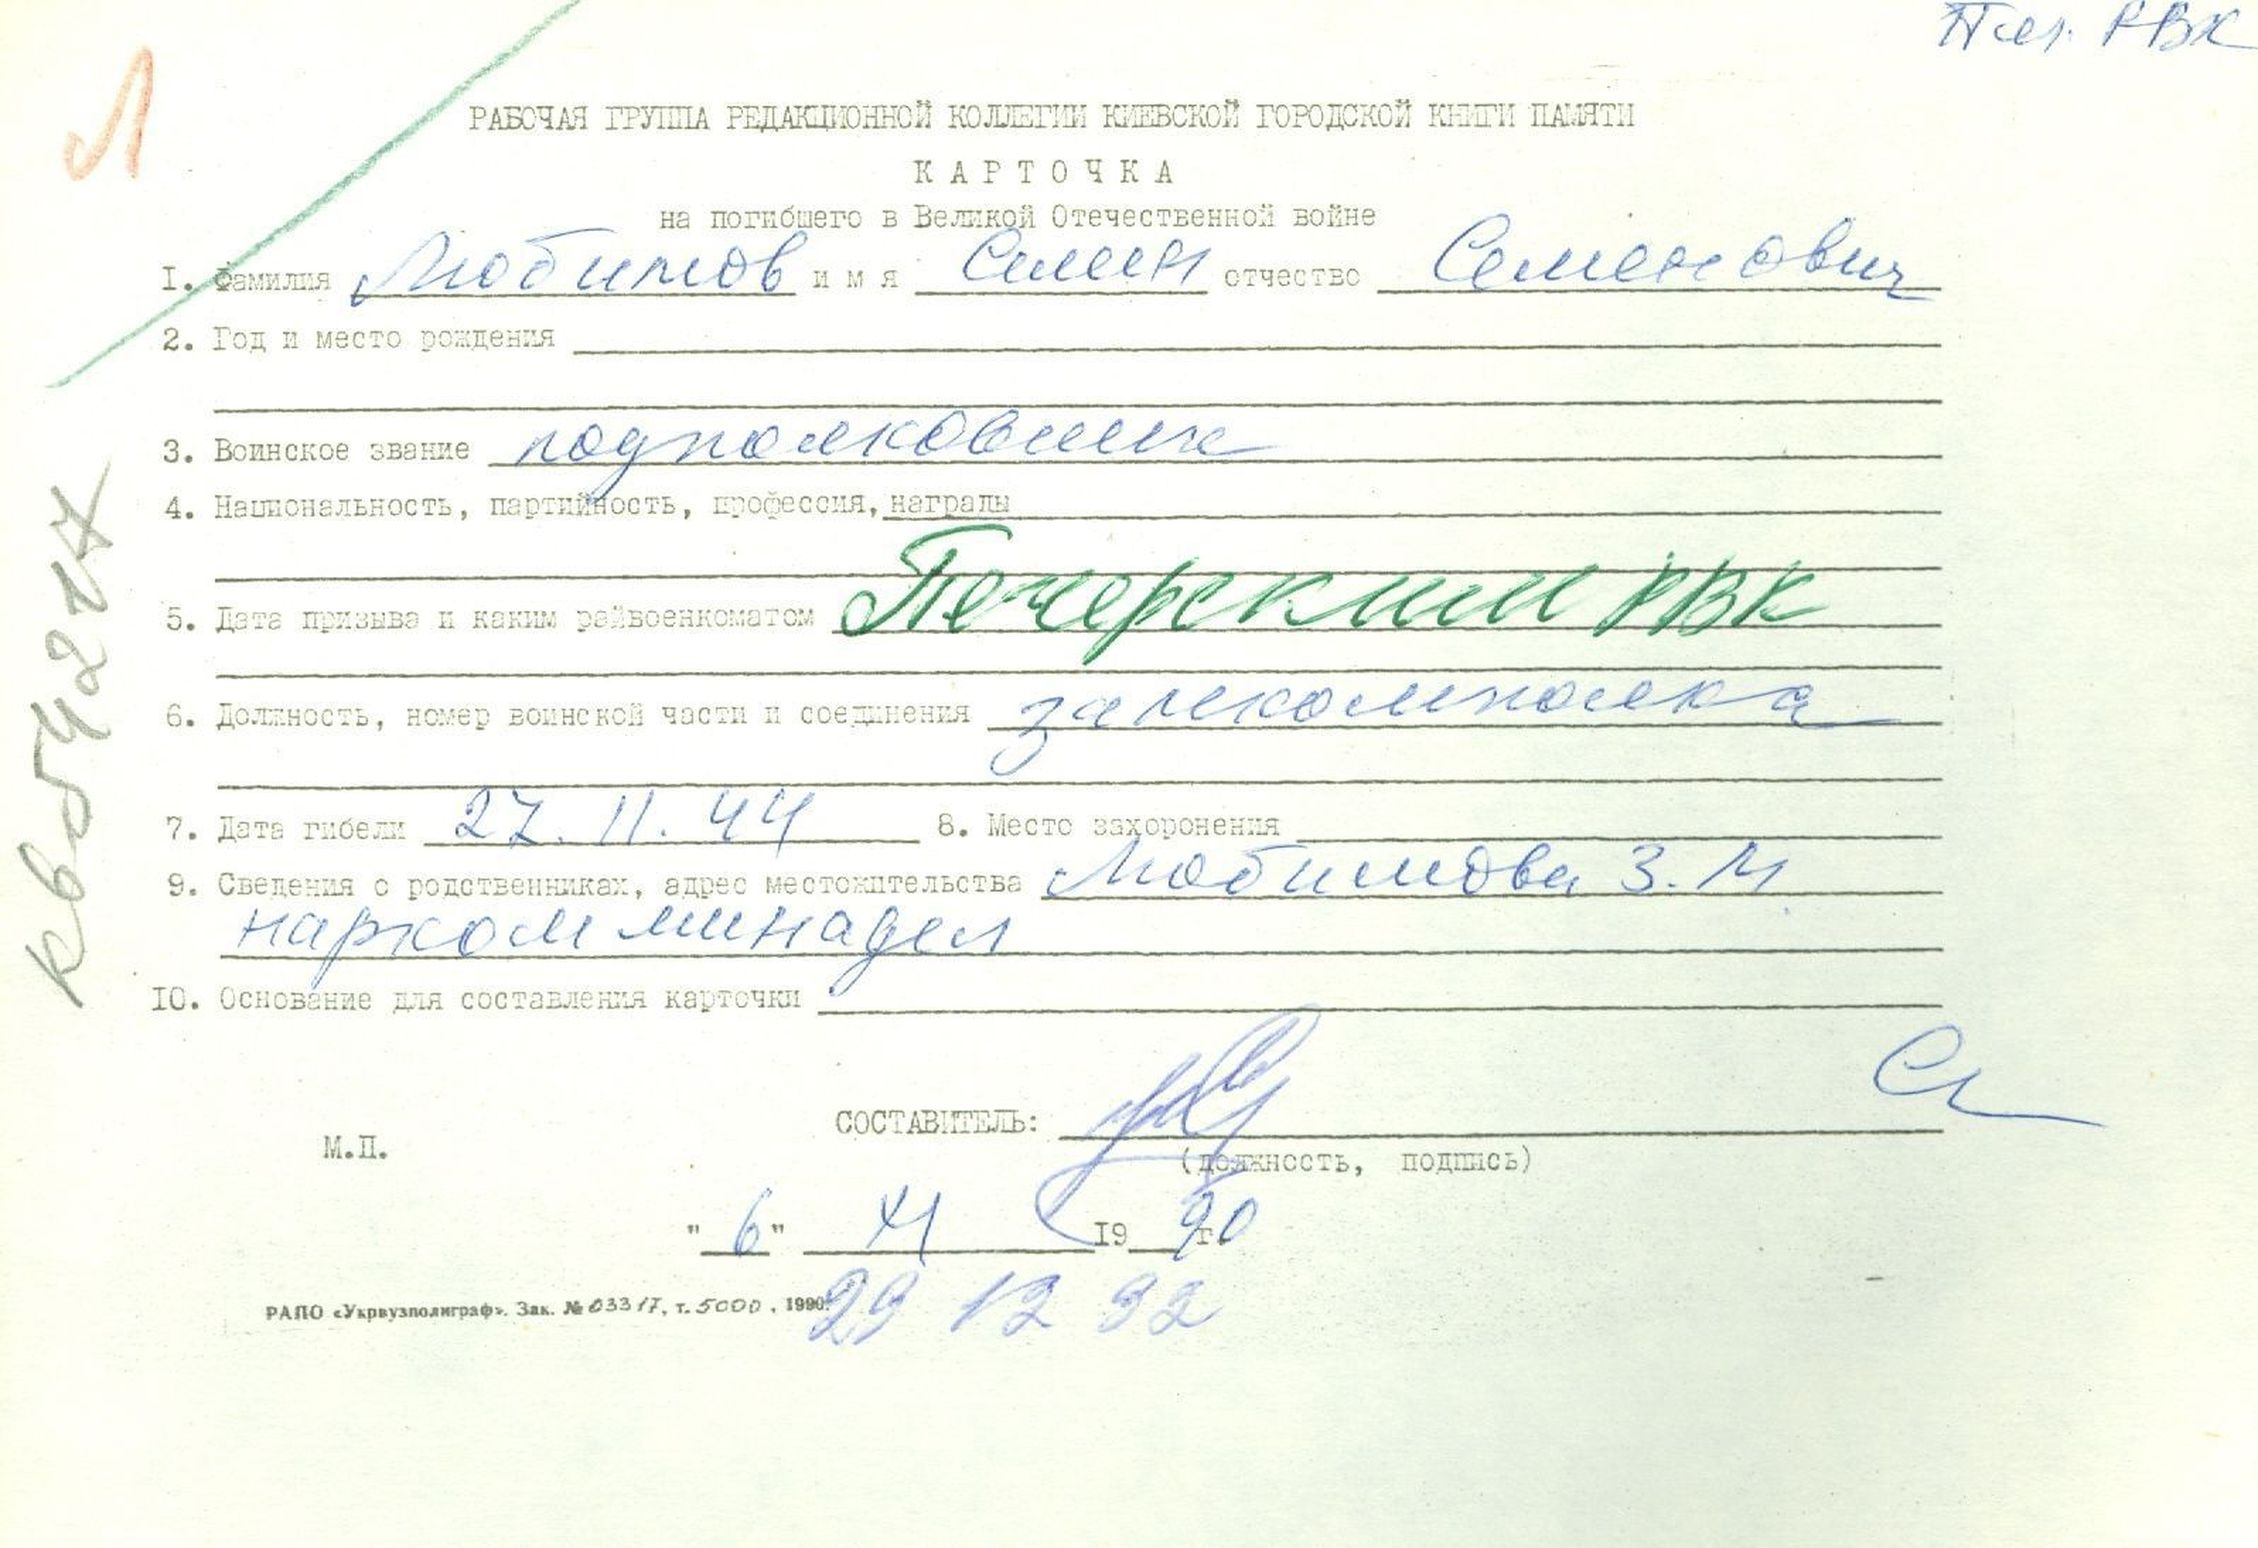 Печ. РВК
Л
РАБОЧАЯ ГРУППА РЕДАКЦИОННОЙ КОЛЛЕГИИ КИЕВСКОЙ ГОРОДСКОЙ КНИГИ ПАМЯТИ
КАРТОЧКА
на погибшего в Великой Отечественной войне
1. Фамилия Любимов имя Семен отчество Семенович
2. Год и место рождения
3. Воинское звание подполковник
4. Национальность, партийность, профессия, награды
5. Дата призыва и каким райвоенкоматом Печерский РВК
6. Должность, номер воинской части и соединения замкомполка
7. Дата гибели 27.11.44 8. Место захоронения
9. Сведения о родственниках, адрес местожительства Любимова З.М
нарком минадел
10. Основание для составления карточки
СОСТАВИТЕЛЬ:
М.П.
(должность, подпись)
"6" XI 1990 г.
РАПО «Укрвузполиграф». Зак. № 03317, т. 5000, 1990.
29 12 92